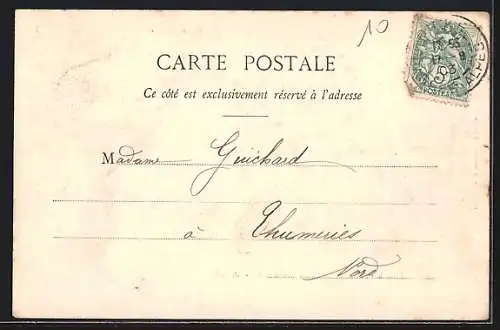 10
CARTE POSTALE
Ce côté est exclusivement réservé à l'adresse
Madame Guichard
à Thumeries
Nord
POSTES